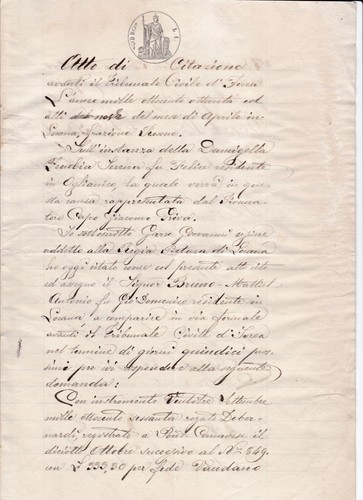 Atto di Citazione
avanti il Tribunale Civile d'Ivrea
L'anno mille ottocento ottanta ed
alli nove del mese di Aprile in
Locana, frazione
Sull'instanza della Damigella
Teresa fu Felice residente
in Oglianico, la quale verrà in que
sta causa rappresentata dal Procura
tore Capo Giacomo
Io sottoscritto Giovanni usciere
addetto alla Regia Pretura di Locana
ho oggi citato come col presente atto cito
ed assegno il Signor Bruno-Mattiet
Antonio fu Gio Domenico residente in
Locana a comparire in via formale
avanti il Tribunale Civile d'Ivrea
nel termine di giorni quindici pros
simi per ivi rispondere alla seguente
domanda:
Con instrumento Settembre
mille ottocento sessanta rogato Deber
nardi, registrato a Pont Canavese il
diciotto Ottobre successivo al N.º 849.
con L 333,30 per fede